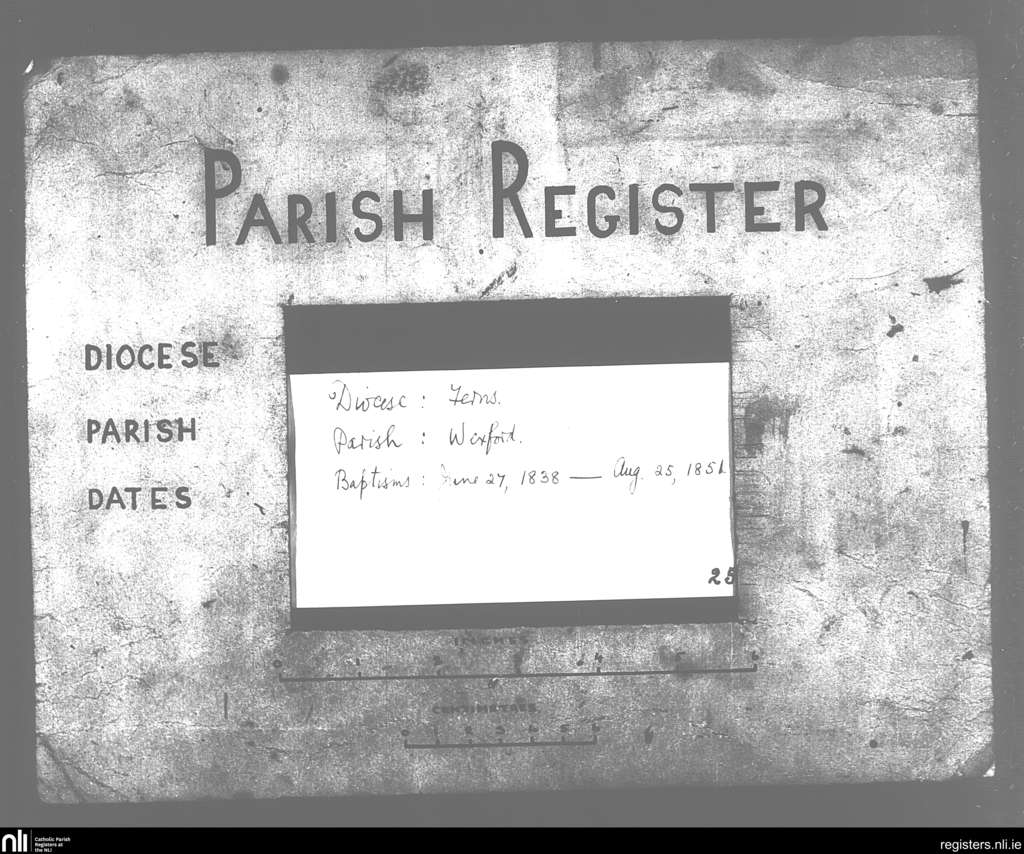 PARISH REGISTER
DIOCESE
PARISH
DATES
Diocese : Ferns.
Parish : Wexford.
Baptisms : June 27, 1838 — Aug. 25, 1851
25
INCHES
CENTIMETRES
nli
Catholic Parish
Registers at
the NLI
registers.nli.ie